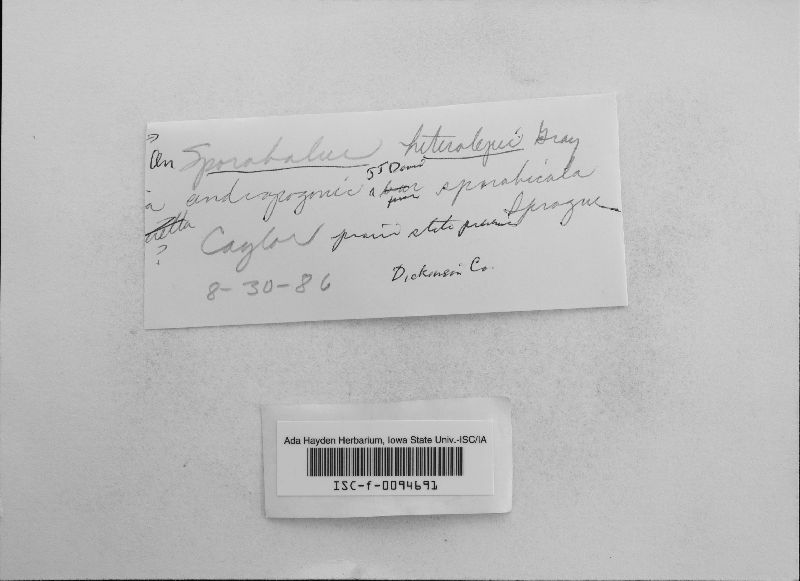 ?
On Sporobolus heterolepis Gray
J J Davis
andropogonis sporobicola
Sprague
Caylor prairie state preserve
?
8-30-86
Dickinson Co.
Ada Hayden Herbarium, Iowa State Univ.-ISC/IA
ISC-f-0094691